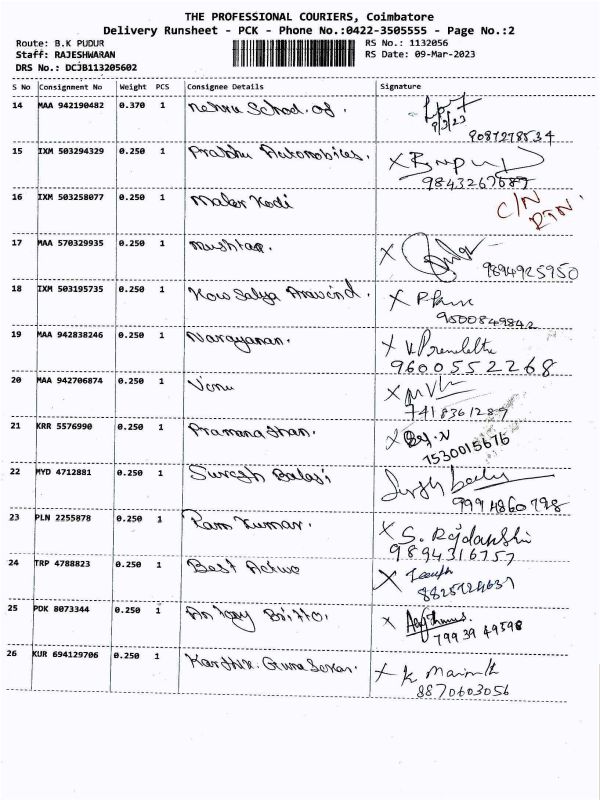 THE PROFESSIONAL COURIERS, Coimbatore
Delivery Runsheet - PCK - Phone No.:0422-3505555 - Page No.:2
Route: B.K PUDUR
RS No.: 1132056
Staff: RAJESHWARAN
RS Date: 09-Mar-2023
DRS No.: DCJB113205602
S No Consignment No Weight PCS Consignee Details Signature
14 MAA 942190482 0.370 1 Nehru School of.
9/3/23
9087278534
15 IXM 503294329 0.250 1 Prabhu Automobiles. X
9843267687
16 IXM 503258077 0.250 1 Malar Kodi C/N
RTN.
17 MAA 570329935 0.250 1 Mushtaq. X
9894925950
18 IXM 503195735 0.250 1 Kow Salya Aravind. X
9500849842
19 MAA 942838246 0.250 1 Narayanan. X V Premlatha
9600552268
20 MAA 942706874 0.250 1 Venu X
7418361289
21 KRR 5576990 0.250 1 X
7530015676
22 MYD 4712881 0.250 1 Suresh Balaji
9994860798
23 PLN 2255878 0.250 1 Ram Kumar. X S.
9894316757
24 TRP 4788823 0.250 1 Best Active X
8825924637
25 PDK 8073344 0.250 1 Antony Britto. X
79939 49598
26 KUR 694129706 0.250 1 Karthik. Guna Sekar. X K
8870603056